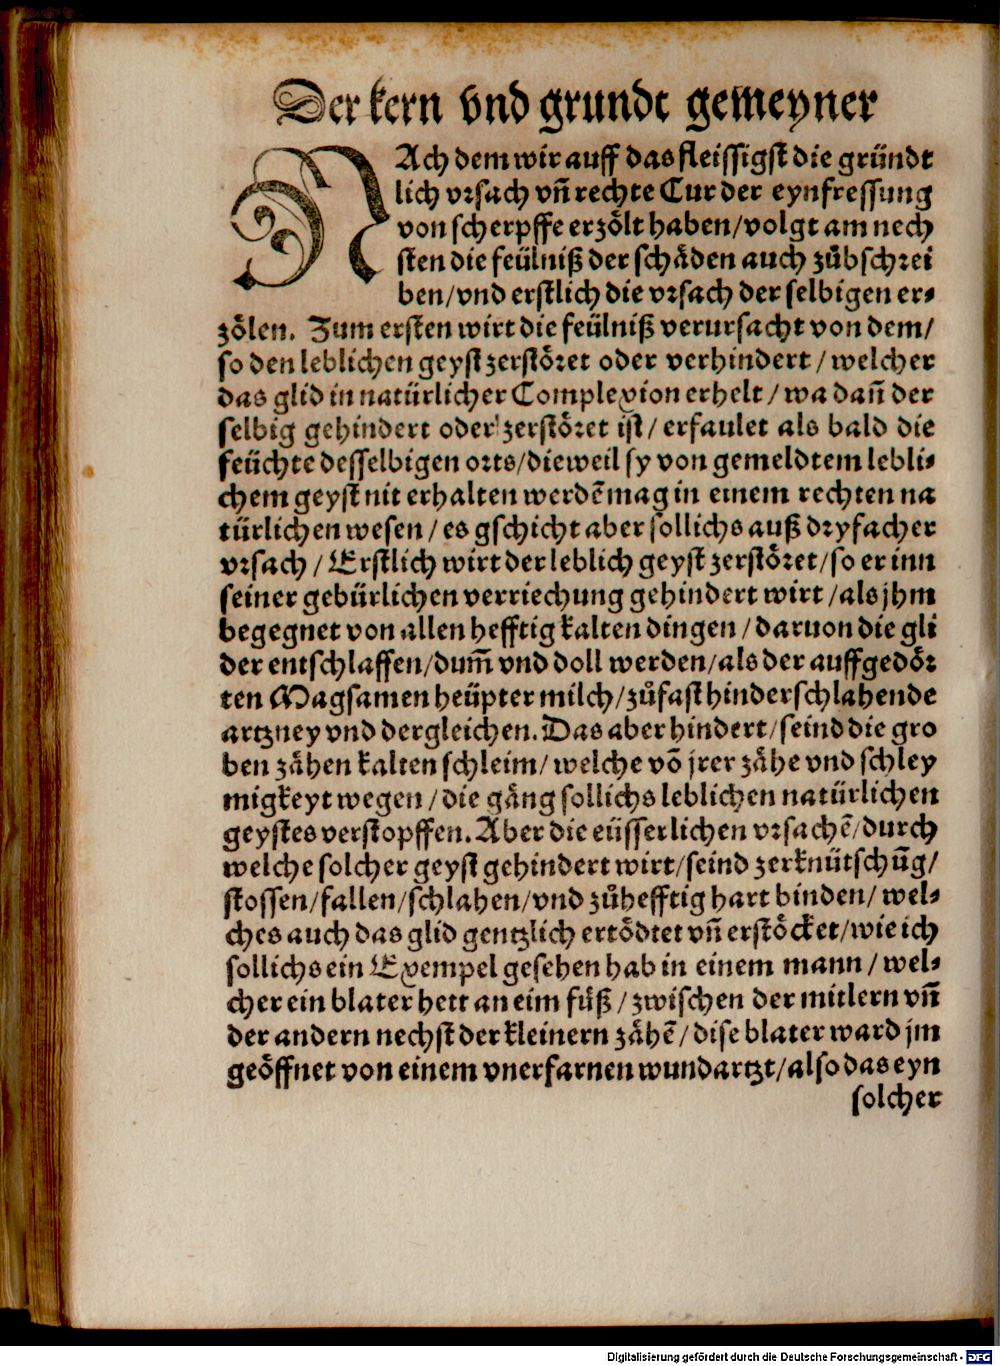 Der kern vnd grundt gemeyner
NAch dem wir auff das fleissigst die gründt
lich vrsach vñ rechte Cur der eynfressung
von scherpffe erzölt haben/volgt am nech
sten die feülniß der schäden auch zůbschrei
ben/vnd erstlich die vrsach der selbigen er⸗
zölen. Zum ersten wirt die feülniß verursacht von dem/
so den leblichen geyst zerstöret oder verhindert/welcher
das glid in natürlicher Complexion erhelt/wa dañ der
selbig gehindert oder zerstöret ist/erfaulet als bald die
feüchte desselbigen orts/dieweil sy von gemeldtem lebli⸗
chem geyst nit erhalten werdẽ mag in einem rechten na
türlichen wesen/es gschicht aber sollichs auß dryfacher
vrsach/Erstlich wirt der leblich geyst zerstöret/so er inn
seiner gebürlichen verriechung gehindert wirt/als jhm
begegnet von allen hefftig kalten dingen/daruon die gli
der entschlaffen/dum̃ vnd doll werden/als der auffgedör
ten Magsamen heüpter milch/zůfast hinderschlahende
artzney vnd dergleichen. Das aber hindert/seind die gro
ben zähen kalten schleim/welche võ jrer zähe vnd schley
migkeyt wegen/die gäng sollichs leblichen natürlichen
geystes verstopffen. Aber die eüsserlichen vrsachẽ/durch
welche solcher geyst gehindert wirt/seind zerknütschũg/
stossen/fallen/schlahen/vnd zůhefftig hart binden/wel⸗
ches auch das glid gentzlich ertödtet vñ erstöcket/wie ich
sollichs ein Exempel gesehen hab in einem mann/wel⸗
cher ein blater hett an eim fůß/zwischen der mitlern vñ
der andern nechst der kleinern zähẽ/dise blater ward jm
geöffnet von einem vnerfarnen wundartzt/also das eyn
solcher
Digitalisierung gefördert durch die Deutsche Forschungsgemeinschaft - DFG